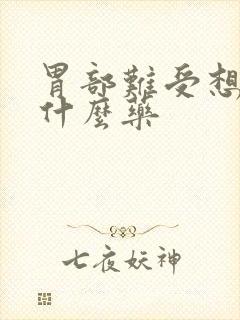 胃部難受想
什麼藥
七夜妖神